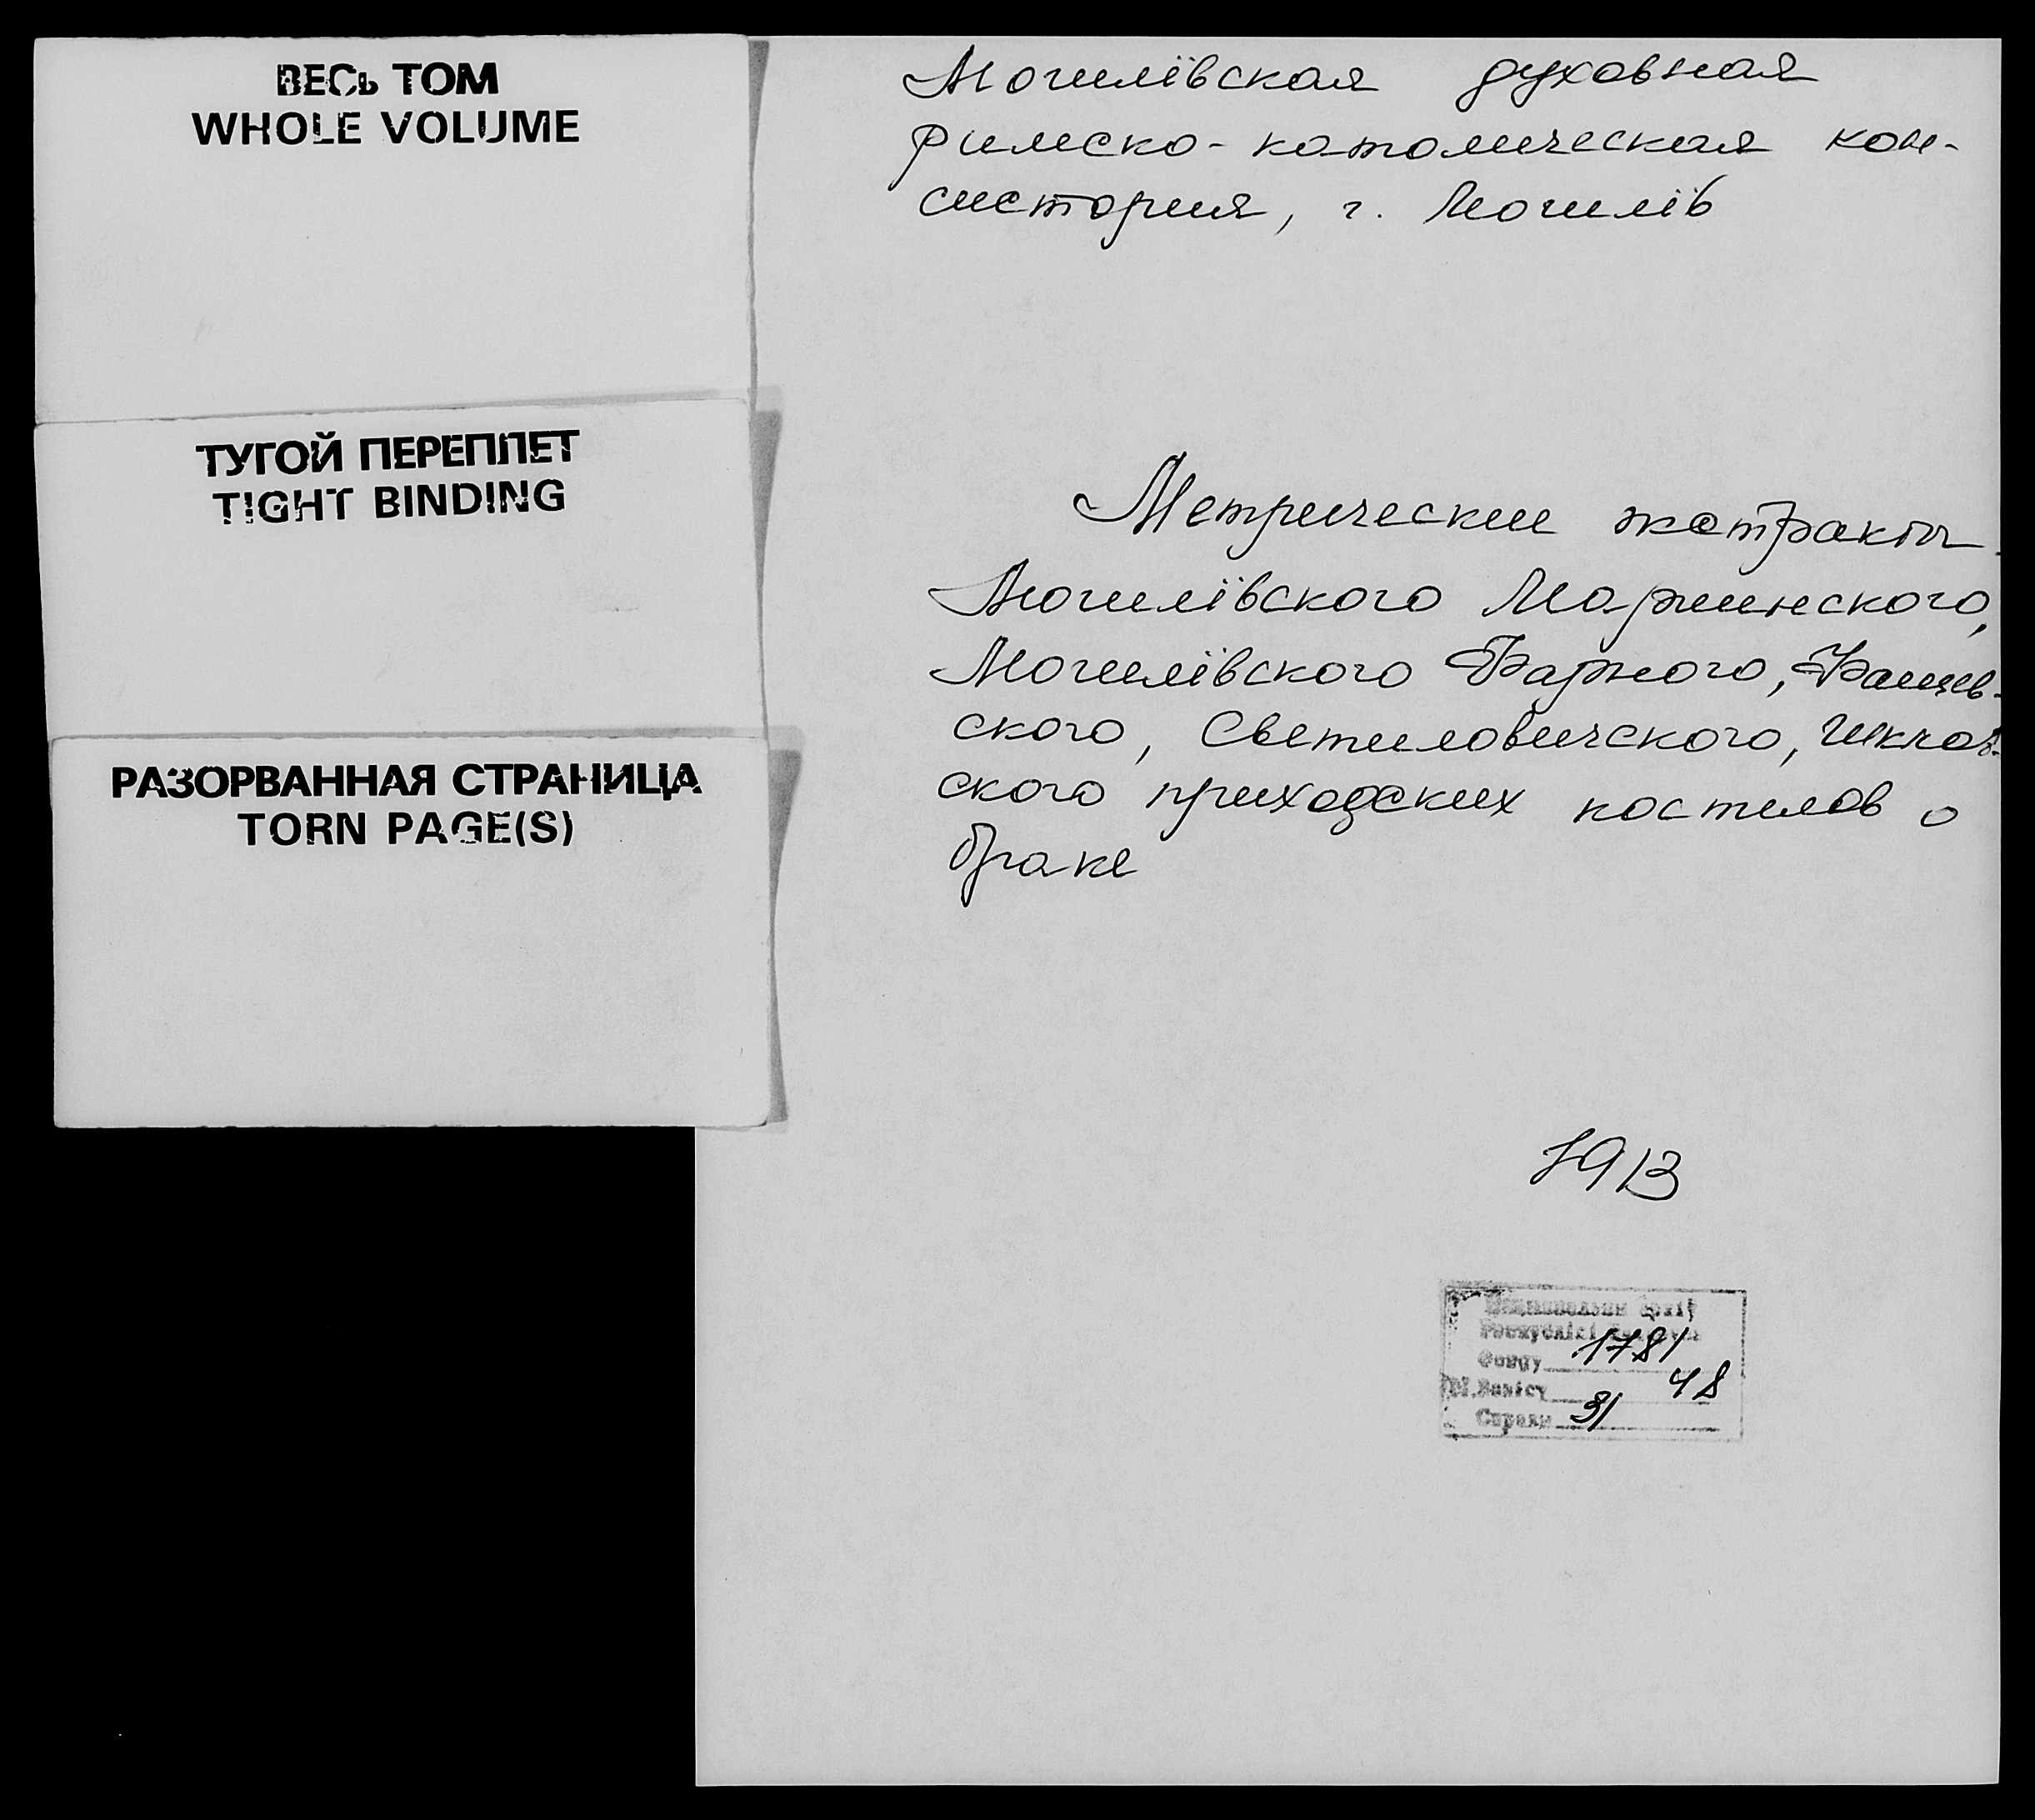 ВЕСЬ ТОМ
WHOLE VOLUME
ТУГОЙ ПЕРЕПЛЕТ
TIGHT BINDING
РАЗОРВАННАЯ СТРАНИЦА
TORN PAGE(S)
Могилёвская духовная
римско-католическая кон-
систория, г. Могилёв
Метрические экстракты
Могилёвского Мариинского,
Могилёвского Фарного, Фащев-
ского, Светиловичского, Шклов-
ского приходских костелов о
браке
1913
Нацыянальны архіў
Рэспублікі Беларусь
Фонду 1781
Вопісу 48
Справы 31